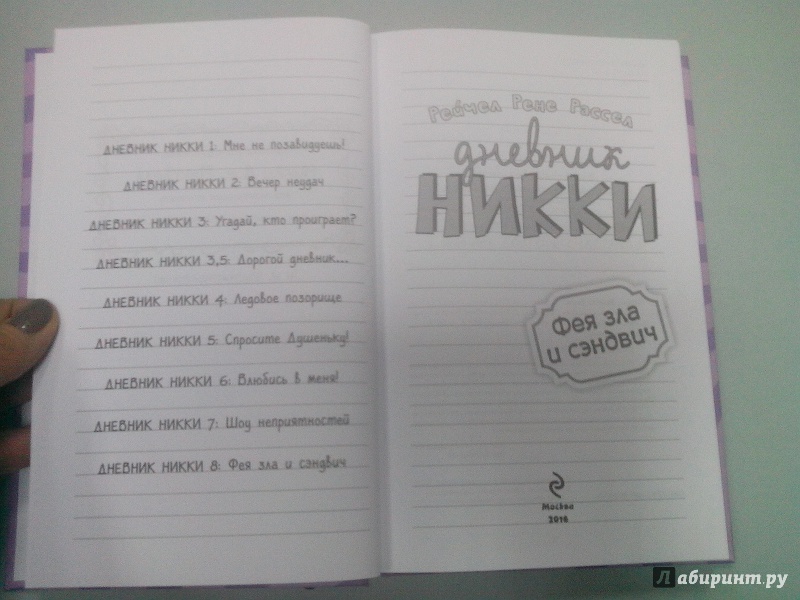 ДНЕВНИК НИККИ 1: Мне не позавидуешь!
ДНЕВНИК НИККИ 2: Вечер неудач
ДНЕВНИК НИККИ 3: Угадай, кто проиграет?
ДНЕВНИК НИККИ 3,5: Дорогой дневник...
ДНЕВНИК НИККИ 4: Ледовое позорище
ДНЕВНИК НИККИ 5: Спросите Душеньку!
ДНЕВНИК НИККИ 6: Влюбись в меня!
ДНЕВНИК НИККИ 7: Шоу неприятностей
ДНЕВНИК НИККИ 8: Фея зла и сэндвич
Рейчел Рене Рассел
дневник
НИККИ
Фея зла
и сэндвич
Москва
2016
Лабиринт.ру